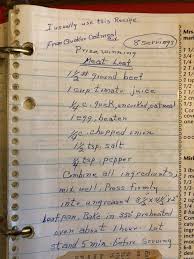 I usually use this Recipe.
From Quaker Oatmeal Box
8 servings
Prize winning
Meat Loaf
1 1/2 # ground beef
1 cup tomato juice
3/4 c. quick, uncooked, oatmeal
1 egg, beaten
1/4 c. chopped onion
1 1/2 tsp. salt
1/4 tsp. pepper
Combine all ingredients,
mix well. Press firmly
into ungreased
Loaf pan. Bake in 350° preheated
oven about 1 hour. Let
stand 5 min. before serving